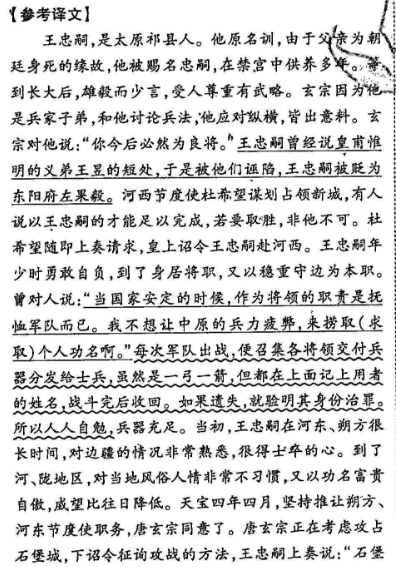 【参考译文】
王忠嗣,是太原祁县人。他原名训,由于父亲为朝
廷身死的缘故,他被赐名忠嗣,在禁宫中供养多年。等
到长大后,雄毅而少言,受人尊重有武略。玄宗因为他
是兵家子弟,和他讨论兵法,他应对纵横,皆出意料。玄
宗对他说:“你今后必然为良将。”王忠嗣曾经说皇甫惟
明的义弟王昱的短处,于是被他们诬陷,王忠嗣被贬为
东阳府左果毅。河西节度使杜希望谋划占领新城,有人
说以王忠嗣的才能足以完成,若要取胜,非他不可。杜
希望随即上奏请求,皇上诏令王忠嗣赴河西。王忠嗣年
少时勇敢自负,到了身居将职,又以稳重守边为本职。
曾对人说:“当国家安定的时候,作为将领的职责是抚
恤军队而已。我不想让中原的兵力疲弊,来捞取(求
取)个人功名啊。”每次军队出战,便召集各将领交付兵
器分发给士兵,虽然是一弓一箭,但都在上面记上用者
的姓名,战斗完后收回。如果遗失,就验明其身份治罪。
所以人人自勉,兵器充足。当初,王忠嗣在河东、朔方很
长时间,对边疆的情况非常熟悉,很得士卒的心。到了
河、陇地区,对当地风俗人情非常不习惯,又以功名富贵
自傲,威望比往日降低。天宝四年四月,坚持推让朔方、
河东节度使职务,唐玄宗同意了。唐玄宗正在考虑攻占
石堡城,下诏令征询攻战的方法,王忠嗣上奏说:“石堡